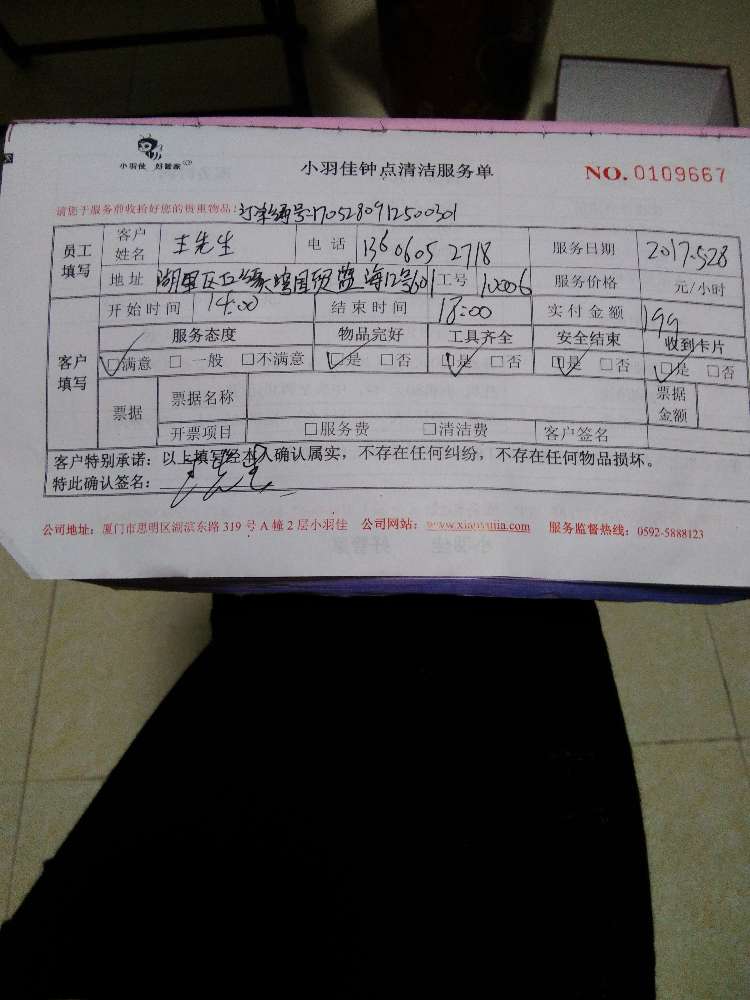 小羽佳 好管家
小羽佳钟点清洁服务单
NO. 0109667
请您于服务前收拾好您的贵重物品! 订单编号:1705280912500301
员工填写 客户姓名 王先生 电话 136 0605 2718 服务日期 2017.528
地址 湖里区 国贸蓝海12号601 工号 10006 服务价格 元/小时
客户填写 开始时间 14:00 结束时间 18:00 实付金额 199
服务态度 物品完好 工具齐全 安全结束 收到卡片
□满意 □一般 □不满意 □是 □否 □是 □否 □是 □否 □是 □否
票据 票据名称 票据金额
开票项目 □服务费 □清洁费 客户签名
客户特别承诺：以上填写经本人确认属实，不存在任何纠纷，不存在任何物品损坏。
特此确认签名：
公司地址：厦门市思明区湖滨东路 319 号 A 幢 2 层小羽佳 公司网站：www.xiaoyujia.com 服务监督热线：0592-5888123